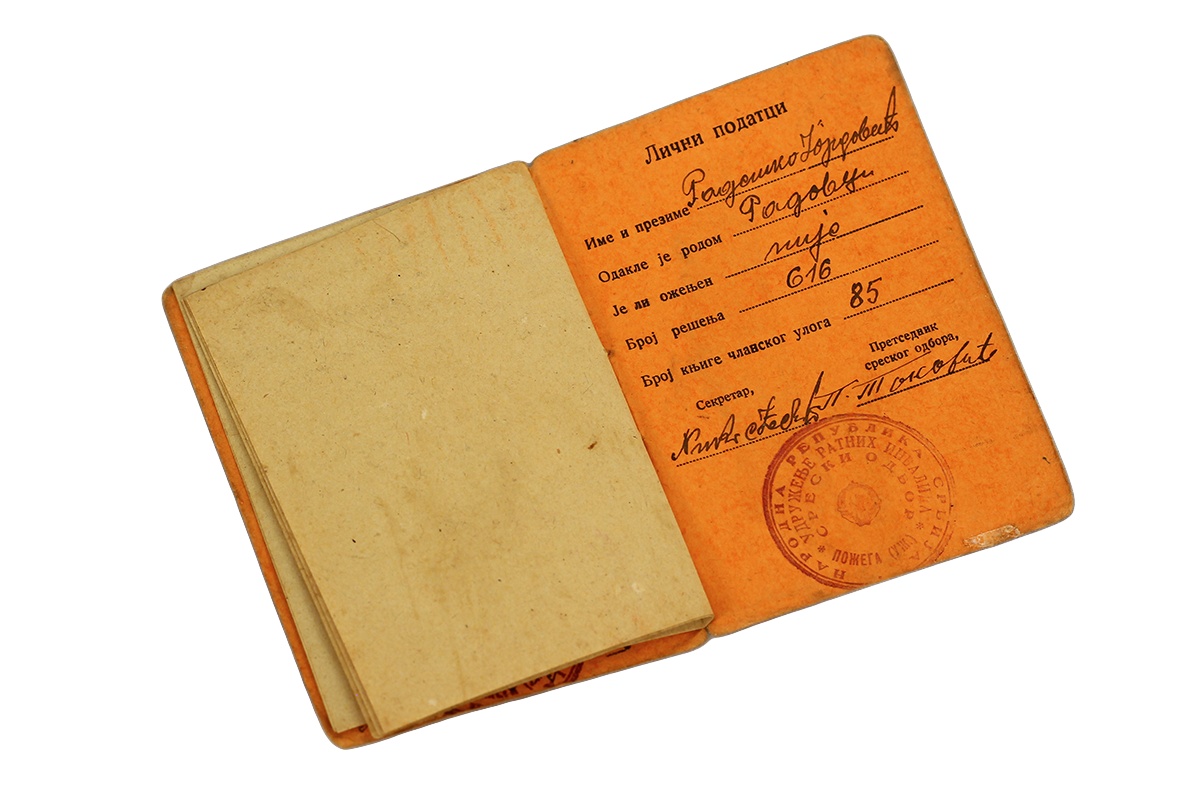 Лични податци
Име и презиме Радошко Ђорђевић
Одакле је родом Радовци
Је ли ожењен није
Број решења 616
Број књиге чланског улога 85
Секретар,
Претседник
среског одбора,
П. Токовић
НАРОДНА РЕПУБЛИКА СРБИЈА
УДРУЖЕЊЕ РАТНИХ ИНВАЛИДА
СРЕСКИ ОДБОР
ПОЖЕГА (УЖ.)